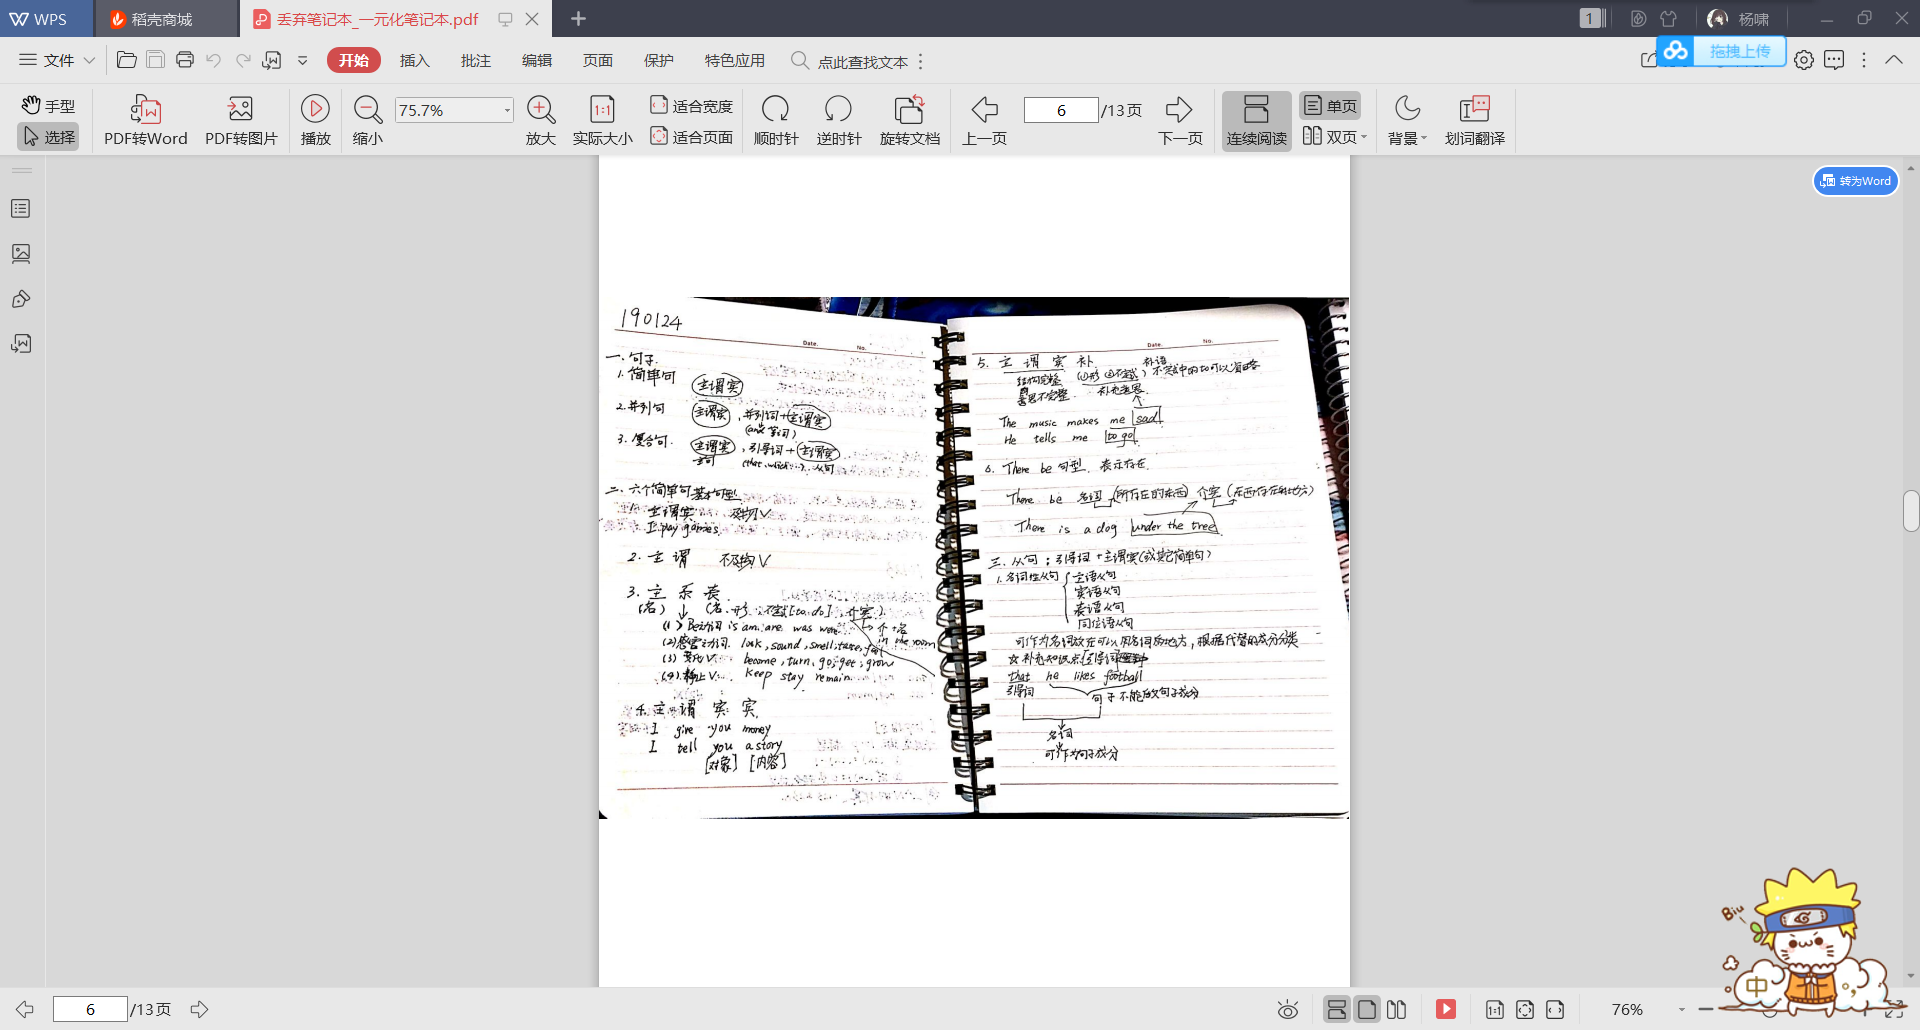 WPS
稻壳商城
丢弃笔记本_一元化笔记本.pdf
1
杨啸
文件
开始
插入
批注
编辑
页面
保护
特色应用
点此查找文本
拖拽上传
手型
选择
PDF转Word
PDF转图片
播放
缩小
75.7%
放大
1:1
实际大小
适合宽度
适合页面
顺时针
逆时针
旋转文档
上一页
6
/13页
下一页
连续阅读
单页
双页
背景
划词翻译
转为Word
190124
Date.
No.
一.句子.
1.简单句
主谓宾
2.并列句
主谓宾，并列词+主谓宾
(and 等词)
3.复合句.
主谓宾，引导词+主谓宾
主句
(that.which...)
从句
二.六个简单句基本句型
1. 主谓宾 及物V
I pay games.
2. 主谓 不及物V
3. 主 系 表.
(名)
(名.形.不定式[to do],介宾).
(1) Be动词 is am. are was were
介+名
in the room
(2)感官动词 look, sound, smell, taste, feel
(3) 变化V. become, turn, go, get, grow
(4).静止V. keep stay remain
4. 主 谓 宾 宾.
I give you money
I tell you a story
[对象] [内容]
Date.
No.
5. 主 谓 宾 补.
补语
结构完整
意思不完整.
(①形 ②不定式) 不定式中的to可以省略
补充宾语
The music makes me sad.
He tells me to go.
6. There be 句型. 表示存在.
There be 名词(所存在的东西) 介宾(东西所存在的地方)
There is a dog under the tree.
三. 从句：引导词+主谓宾(或其它简单句)
1.名词性从句
主语从句
宾语从句
表语从句
同位语从句
可作为名词放在可以用名词的地方，根据代替的成分分类
☆补充知识点[引导词
that he likes football
引导词
句子不能做句子成分
名词
可作为句子成分
Biu
中
6
/13页
1:1
76%